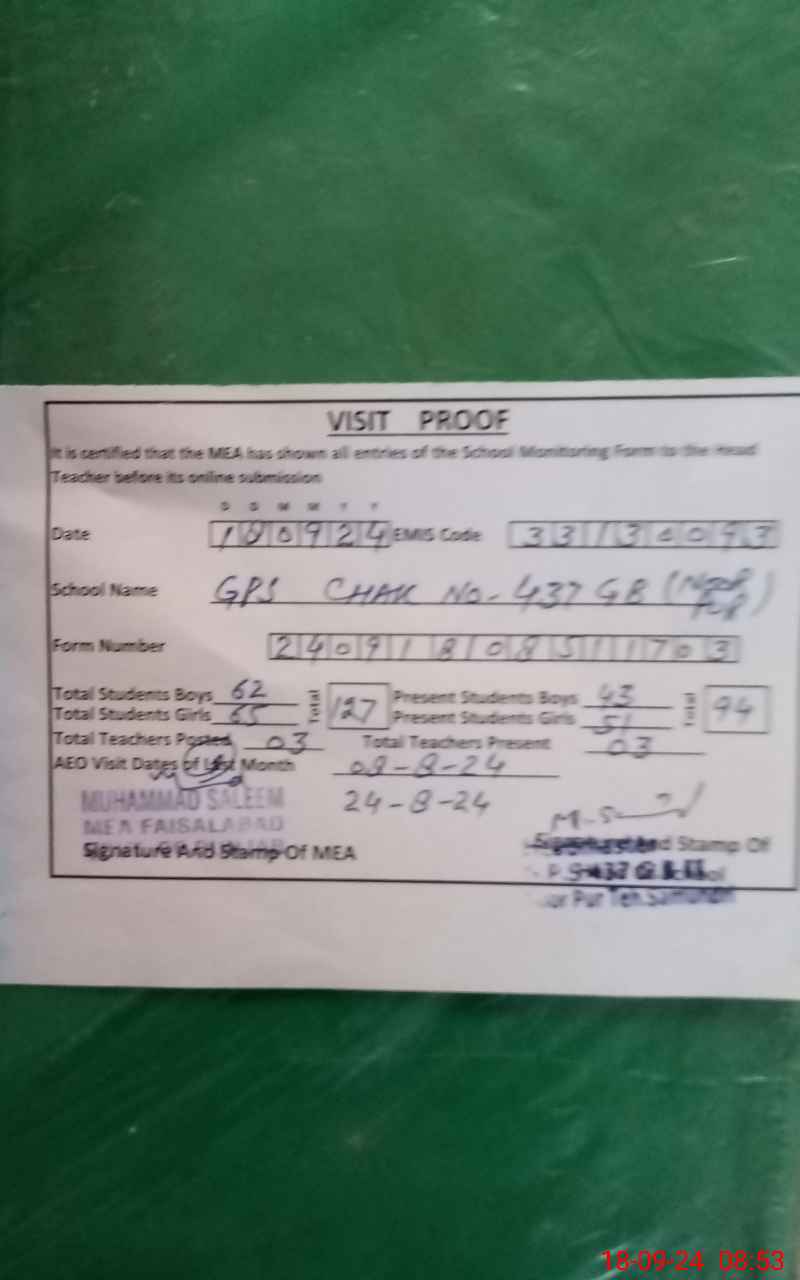 VISIT PROOF
It is certified that the MEA has shown all entries of the School Monitoring Form to the Head
Teacher before its online submission
D D M M Y Y
Date 180924 EMIS Code 33130093
School Name GPS CHAK NO- 437 GB (NOOR PUR)
Form Number 240918108511703
Total Students Boys 62 Total 127 Present Students Boys 43 Total 94
Total Students Girls 65 Present Students Girls 51
Total Teachers Posted 03 Total Teachers Present 03
AEO Visit Dates of Last Month 09-8-24
24-8-24
MUHAMMAD SALEEM
MEA FAISALABAD
Signature And Stamp Of MEA
Signature And Stamp Of
Pur Teh.Samundri
18-09-24 08:53